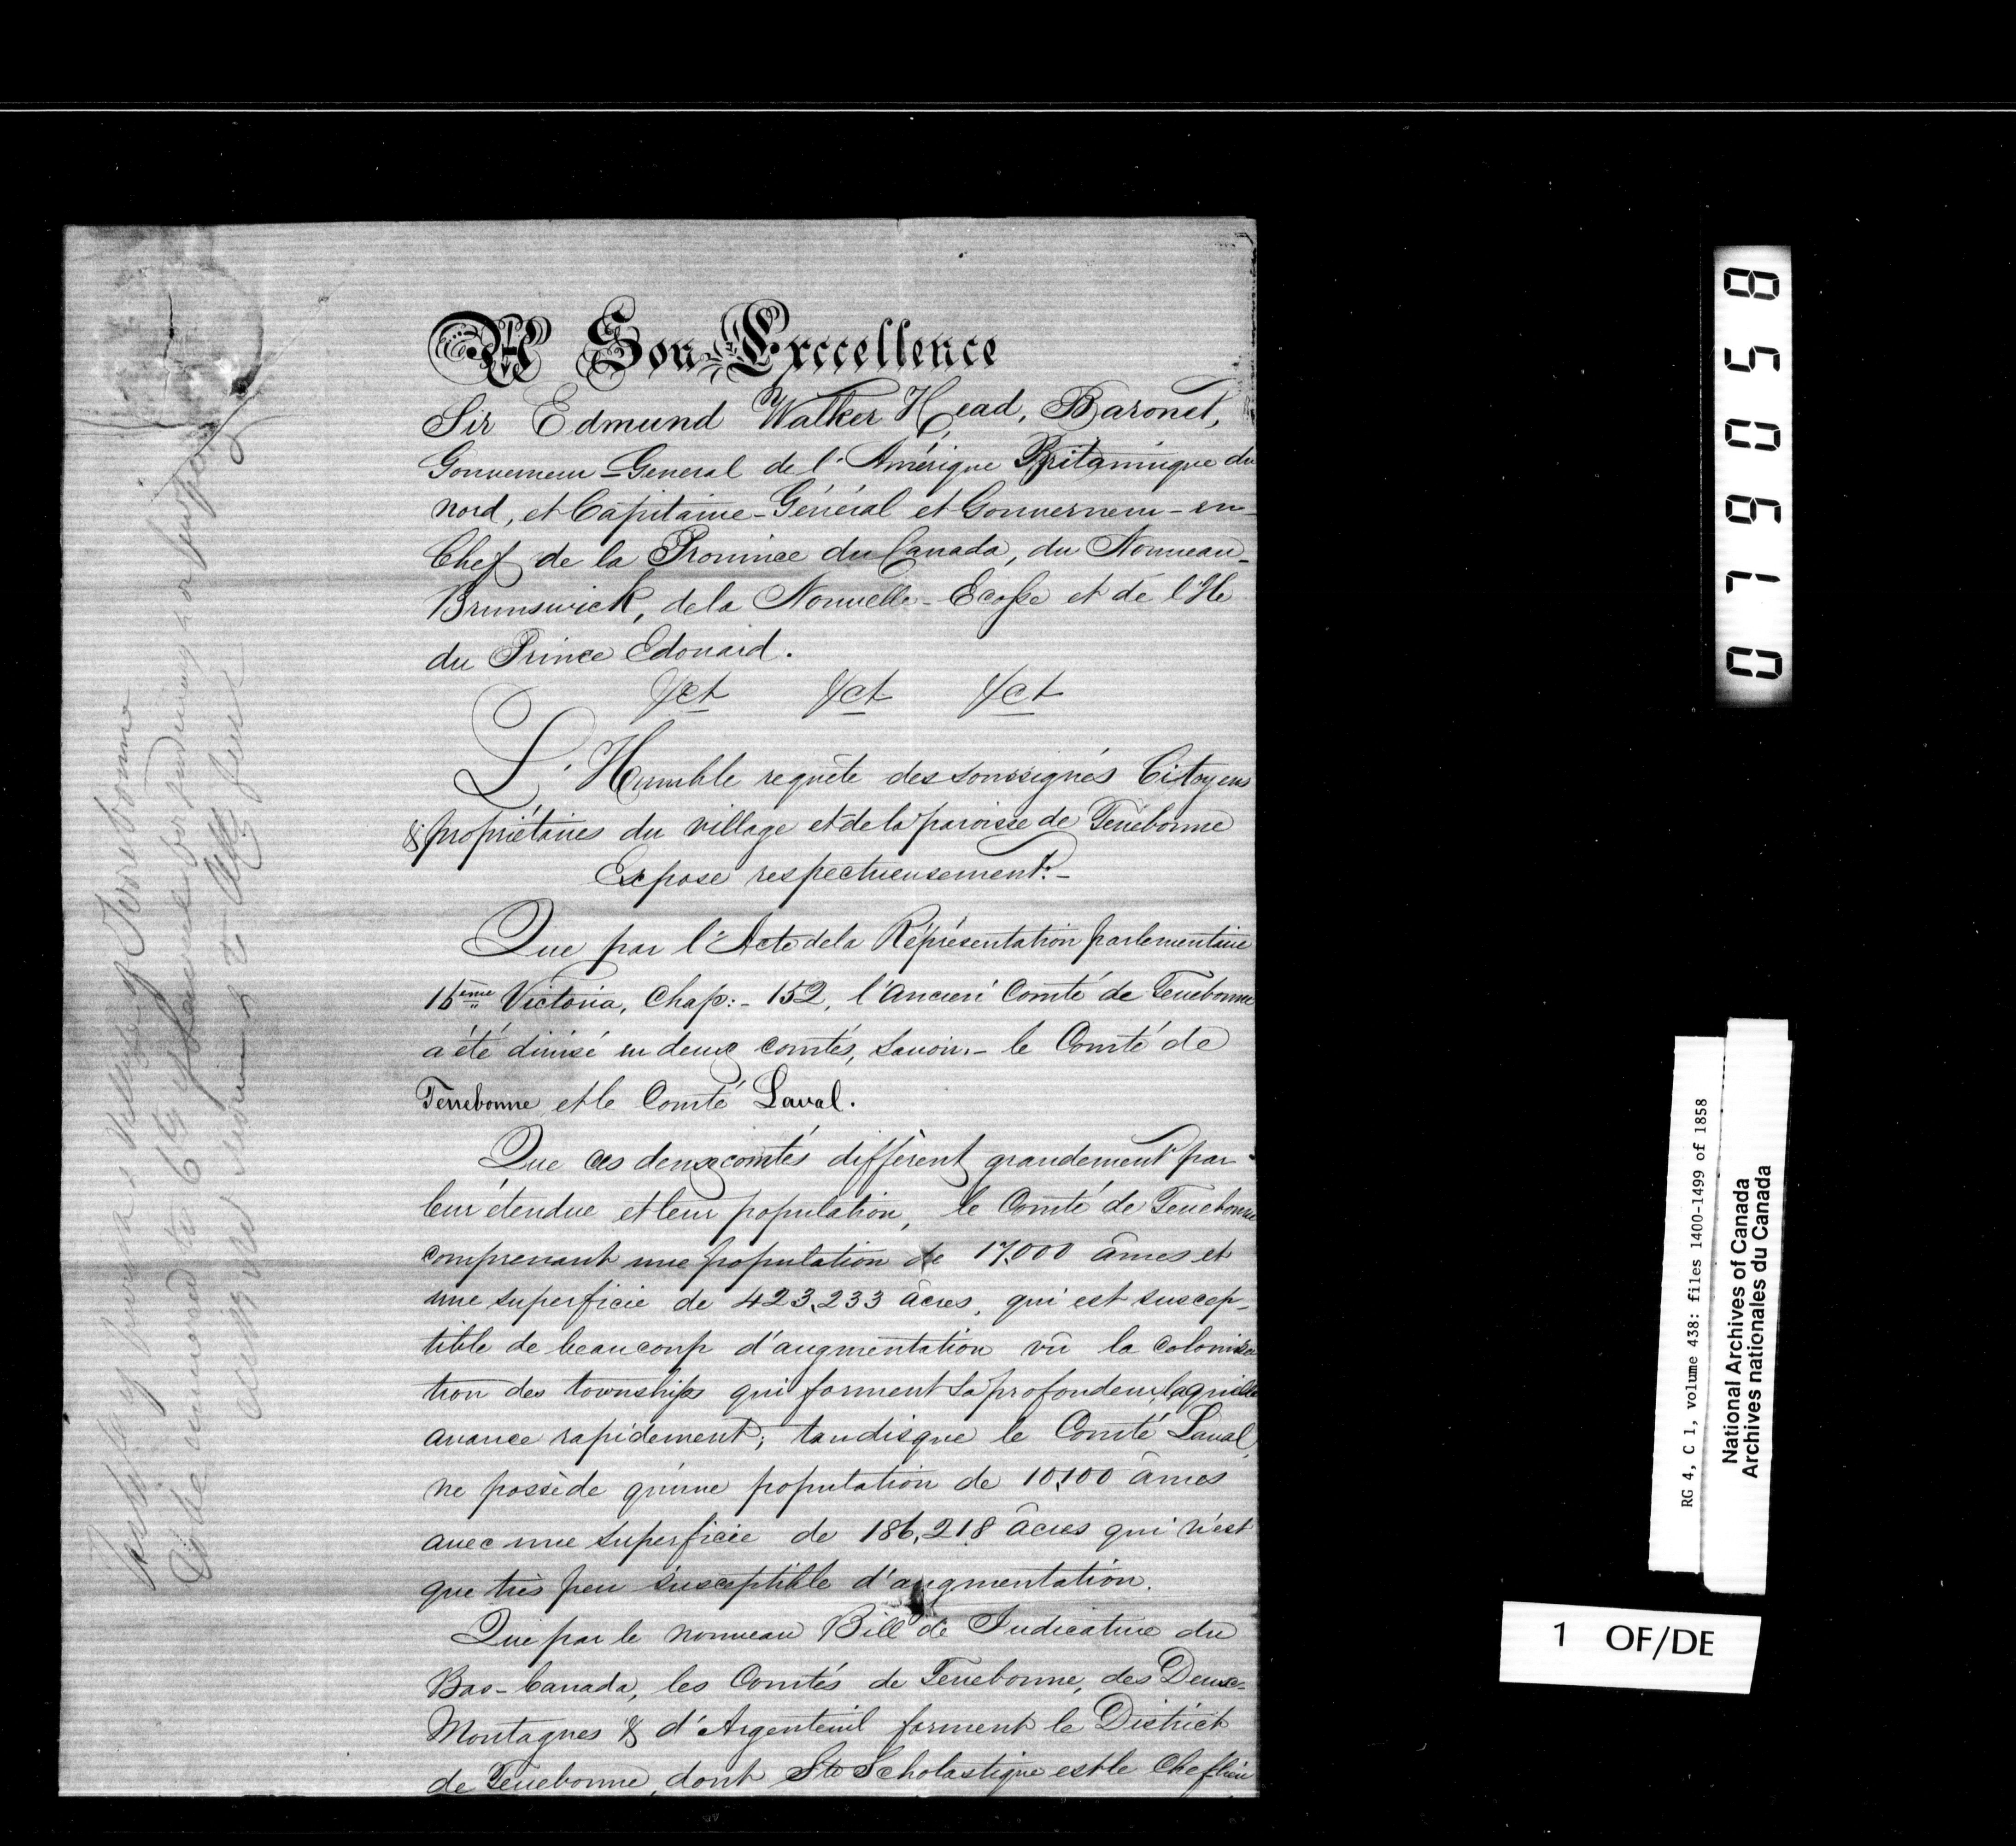 A Son Exccellence
Sir Edmund Walker Head, Baronet,
Gouverneur-General de l'Amérique Britannique du
nord, et Capitaine-Général et Gouverneur-en-
Chef de la Province du Canada, du Nouveau-
Brunswick, de la Nouvelle-Ecosse et de l'Ile
du Prince Edouard.
&ct &ct &ct
L'Humble requête des soussignés Citoyens
& propriétaires du village et de la paroisse de Terrebonne
Expose respectueusement:-
Que par l'Acte de la Réprésentation parlementaire
16ème Victoria, Chap:- 152, l'ancien Comté de Terrebonne
a été divisé en deux comtés, savoir,- le Comté de
Terrebonne et le Comté Laval.
Que ces deux comtés diffèrent grandement par
leur étendue et leur population, le Comté de Terrebonne
comprenant une population de 17,000 âmes et
une superficie de 423,233 âcres, qui est suscep-
tible de beaucoup d'augmentation vû la colonisa
tion des townships qui forment sa profondeur, laquelle
avance rapidement; tandisque le Comté Laval,
ne possède qu'une population de 10,100 âmes
avec une superficie de 186,218 âcres qui n'est
que très peu susceptible d'augmentation.
Que par le nouveau Bill de Judicature du
Bas-Canada, les Comtés de Terrebonne, des Deux-
Montagnes & d'Argenteuil forment le District
de Terrebonne, dont Ste Scholastique est le Cheflieu
Village of Terrebonne
079058
RG 4, C 1, volume 438: files 1400-1499 of 1858
National Archives of Canada
Archives nationales du Canada
1 OF/DE